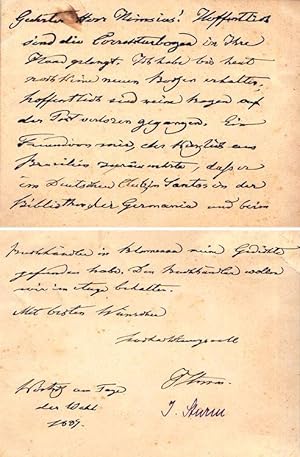 Geehrter Herr Minucius! Hoffentlich
sind die Correcturbogen in Ihre
Hand gelangt. Ich habe bis heut
noch keine neuen Bogen erhalten,
hoffentlich sind keine Bogen auf
der Post verloren gegangen. Ein
mir, der kürzlich aus
Brasilien zurückkehrte, daß er
im Deutschen Club in Santos in der
Bibliothek der Germania und beim
Buchhändler in Blumenau mein Gedicht
gefunden habe. Den Buchhändler wollen
wir im Auge behalten.
Mit besten Wünschen
hochachtungsvoll
am Tage
der Wahl
J. Sturm